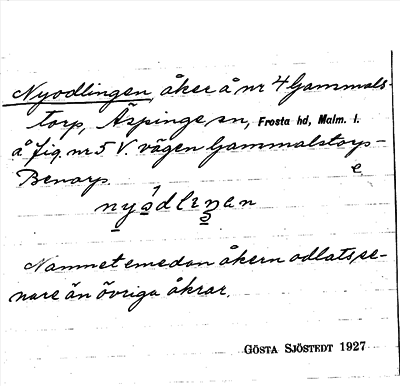 Nyodlingen, åker å nr 4 Gammals-
torp, Äspinge sn, Frosta hd, Malm. l.
å fig. nr 5 V. vägen Gammalstorp-
Benarp.
Namnet emedan åkern odlats se-
nare än övriga åkrar.
GÖSTA SJÖSTEDT 1927